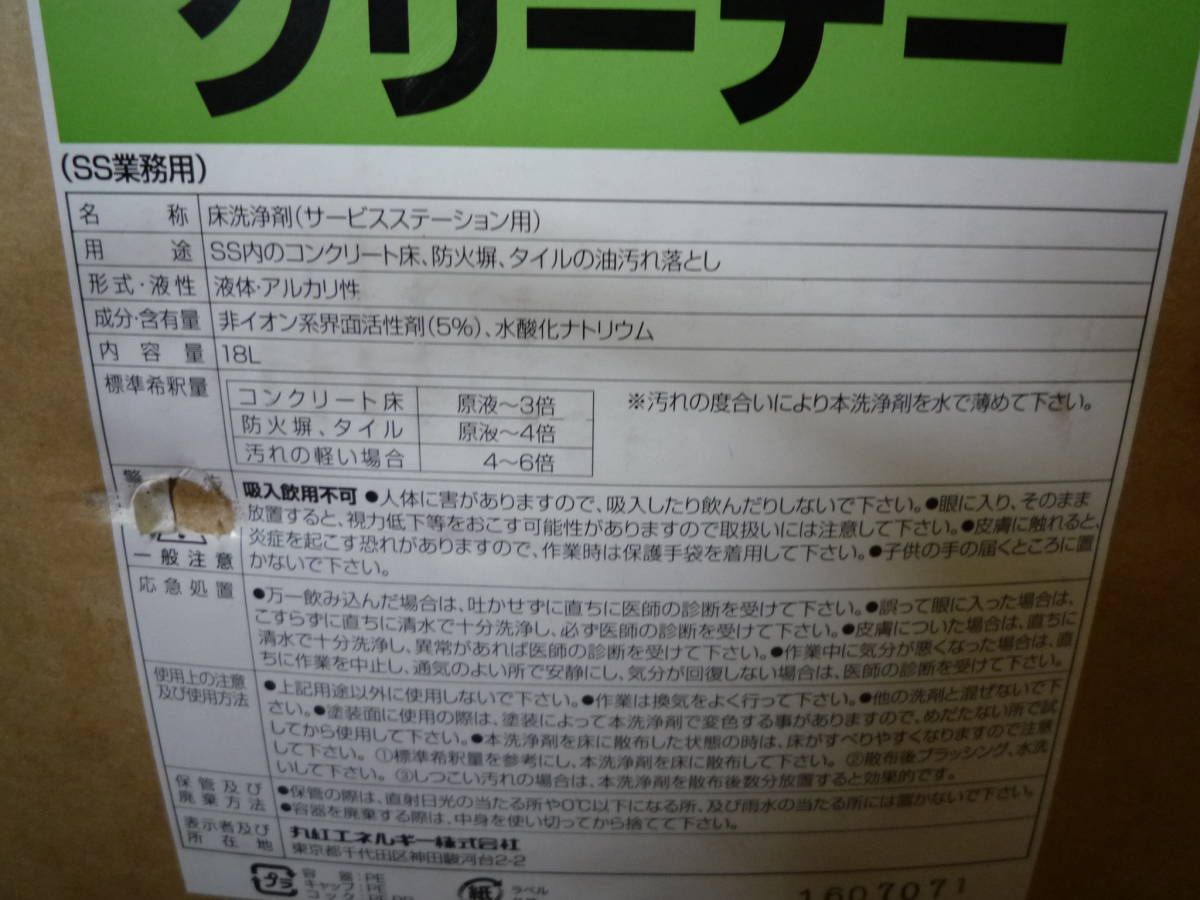 クリーナー
(SS業務用)
名称 床洗浄剤(サービスステーション用)
用途 SS内のコンクリート床、防火塀、タイルの油汚れ落とし
形式・液性 液体・アルカリ性
成分・含有量 非イオン系界面活性剤(5%)、水酸化ナトリウム
内容量 18L
標準希釈量
コンクリート床 原液〜3倍 ※汚れの度合いにより本洗浄剤を水で薄めて下さい。
防火塀、タイル 原液〜4倍
汚れの軽い場合 4〜6倍
警告
一般注意
吸入飲用不可 ●人体に害がありますので、吸入したり飲んだりしないで下さい。●眼に入り、そのまま
放置すると、視力低下等をおこす可能性がありますので取扱いには注意して下さい。●皮膚に触れると、
炎症を起こす恐れがありますので、作業時は保護手袋を着用して下さい。●子供の手の届くところに置
かないで下さい。
応急処置
●万一飲み込んだ場合は、吐かせずに直ちに医師の診断を受けて下さい。●誤って眼に入った場合は、
こすらずに直ちに清水で十分洗浄し、必ず医師の診断を受けて下さい。●皮膚についた場合は、直ちに
清水で十分洗浄し、異常があれば医師の診断を受けて下さい。●作業中に気分が悪くなった場合は、直
ちに作業を中止し、通気のよい所で安静にし、気分が回復しない場合は、医師の診断を受けて下さい。
使用上の注意
及び使用方法
●上記用途以外に使用しないで下さい。●作業は換気をよく行って下さい。●他の洗剤と混ぜないで下
さい。●塗装面に使用の際は、塗装によって本洗浄剤で変色する事がありますので、めだたない所で試
してから使用して下さい。●本洗浄剤を床に散布した状態の時は、床がすべりやすくなりますので注意
して下さい。①標準希釈量を参考にし、本洗浄剤を床に散布して下さい。②散布後ブラッシング、水洗
いして下さい。③しつこい汚れの場合は、本洗浄剤を散布後数分放置すると効果的です。
保管及び
廃棄方法
●保管の際は、直射日光の当たる所や0℃以下になる所、及び雨水の当たる所には置かないで下さい。
●容器を廃棄する際は、中身を使い切ってから捨てて下さい。
表示者及び
所在地
丸紅エネルギー株式会社
東京都千代田区神田駿河台2-2
プラ
容器:PE
キャップ:PE
コック:
紙
ラベル
1607071